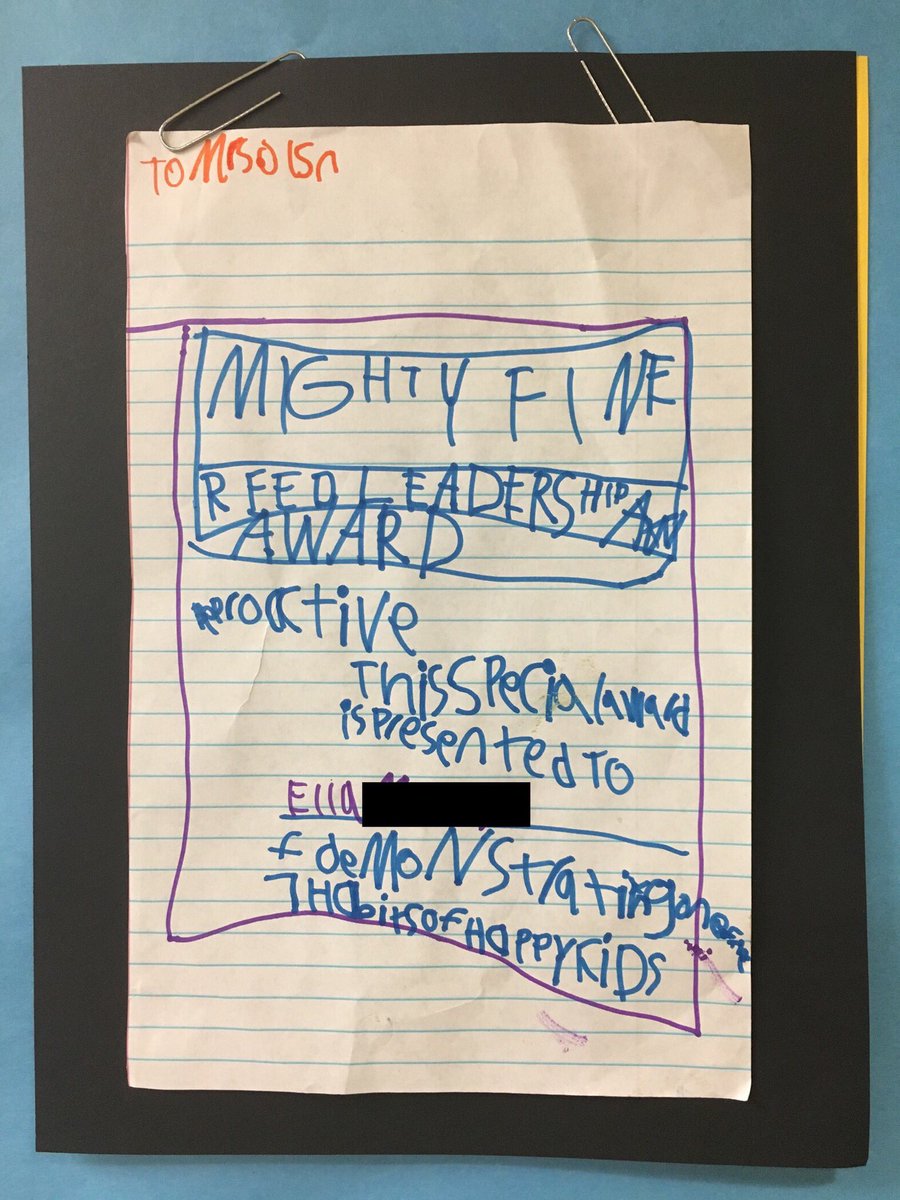 TO MRS OlSn
MIGHTY FINE
REED LEADERSHIP AW
AWARD
Proactive
This special award
is presented TO
Ella
f deMoNstrating one of the
7 Habits of HappY KiDS